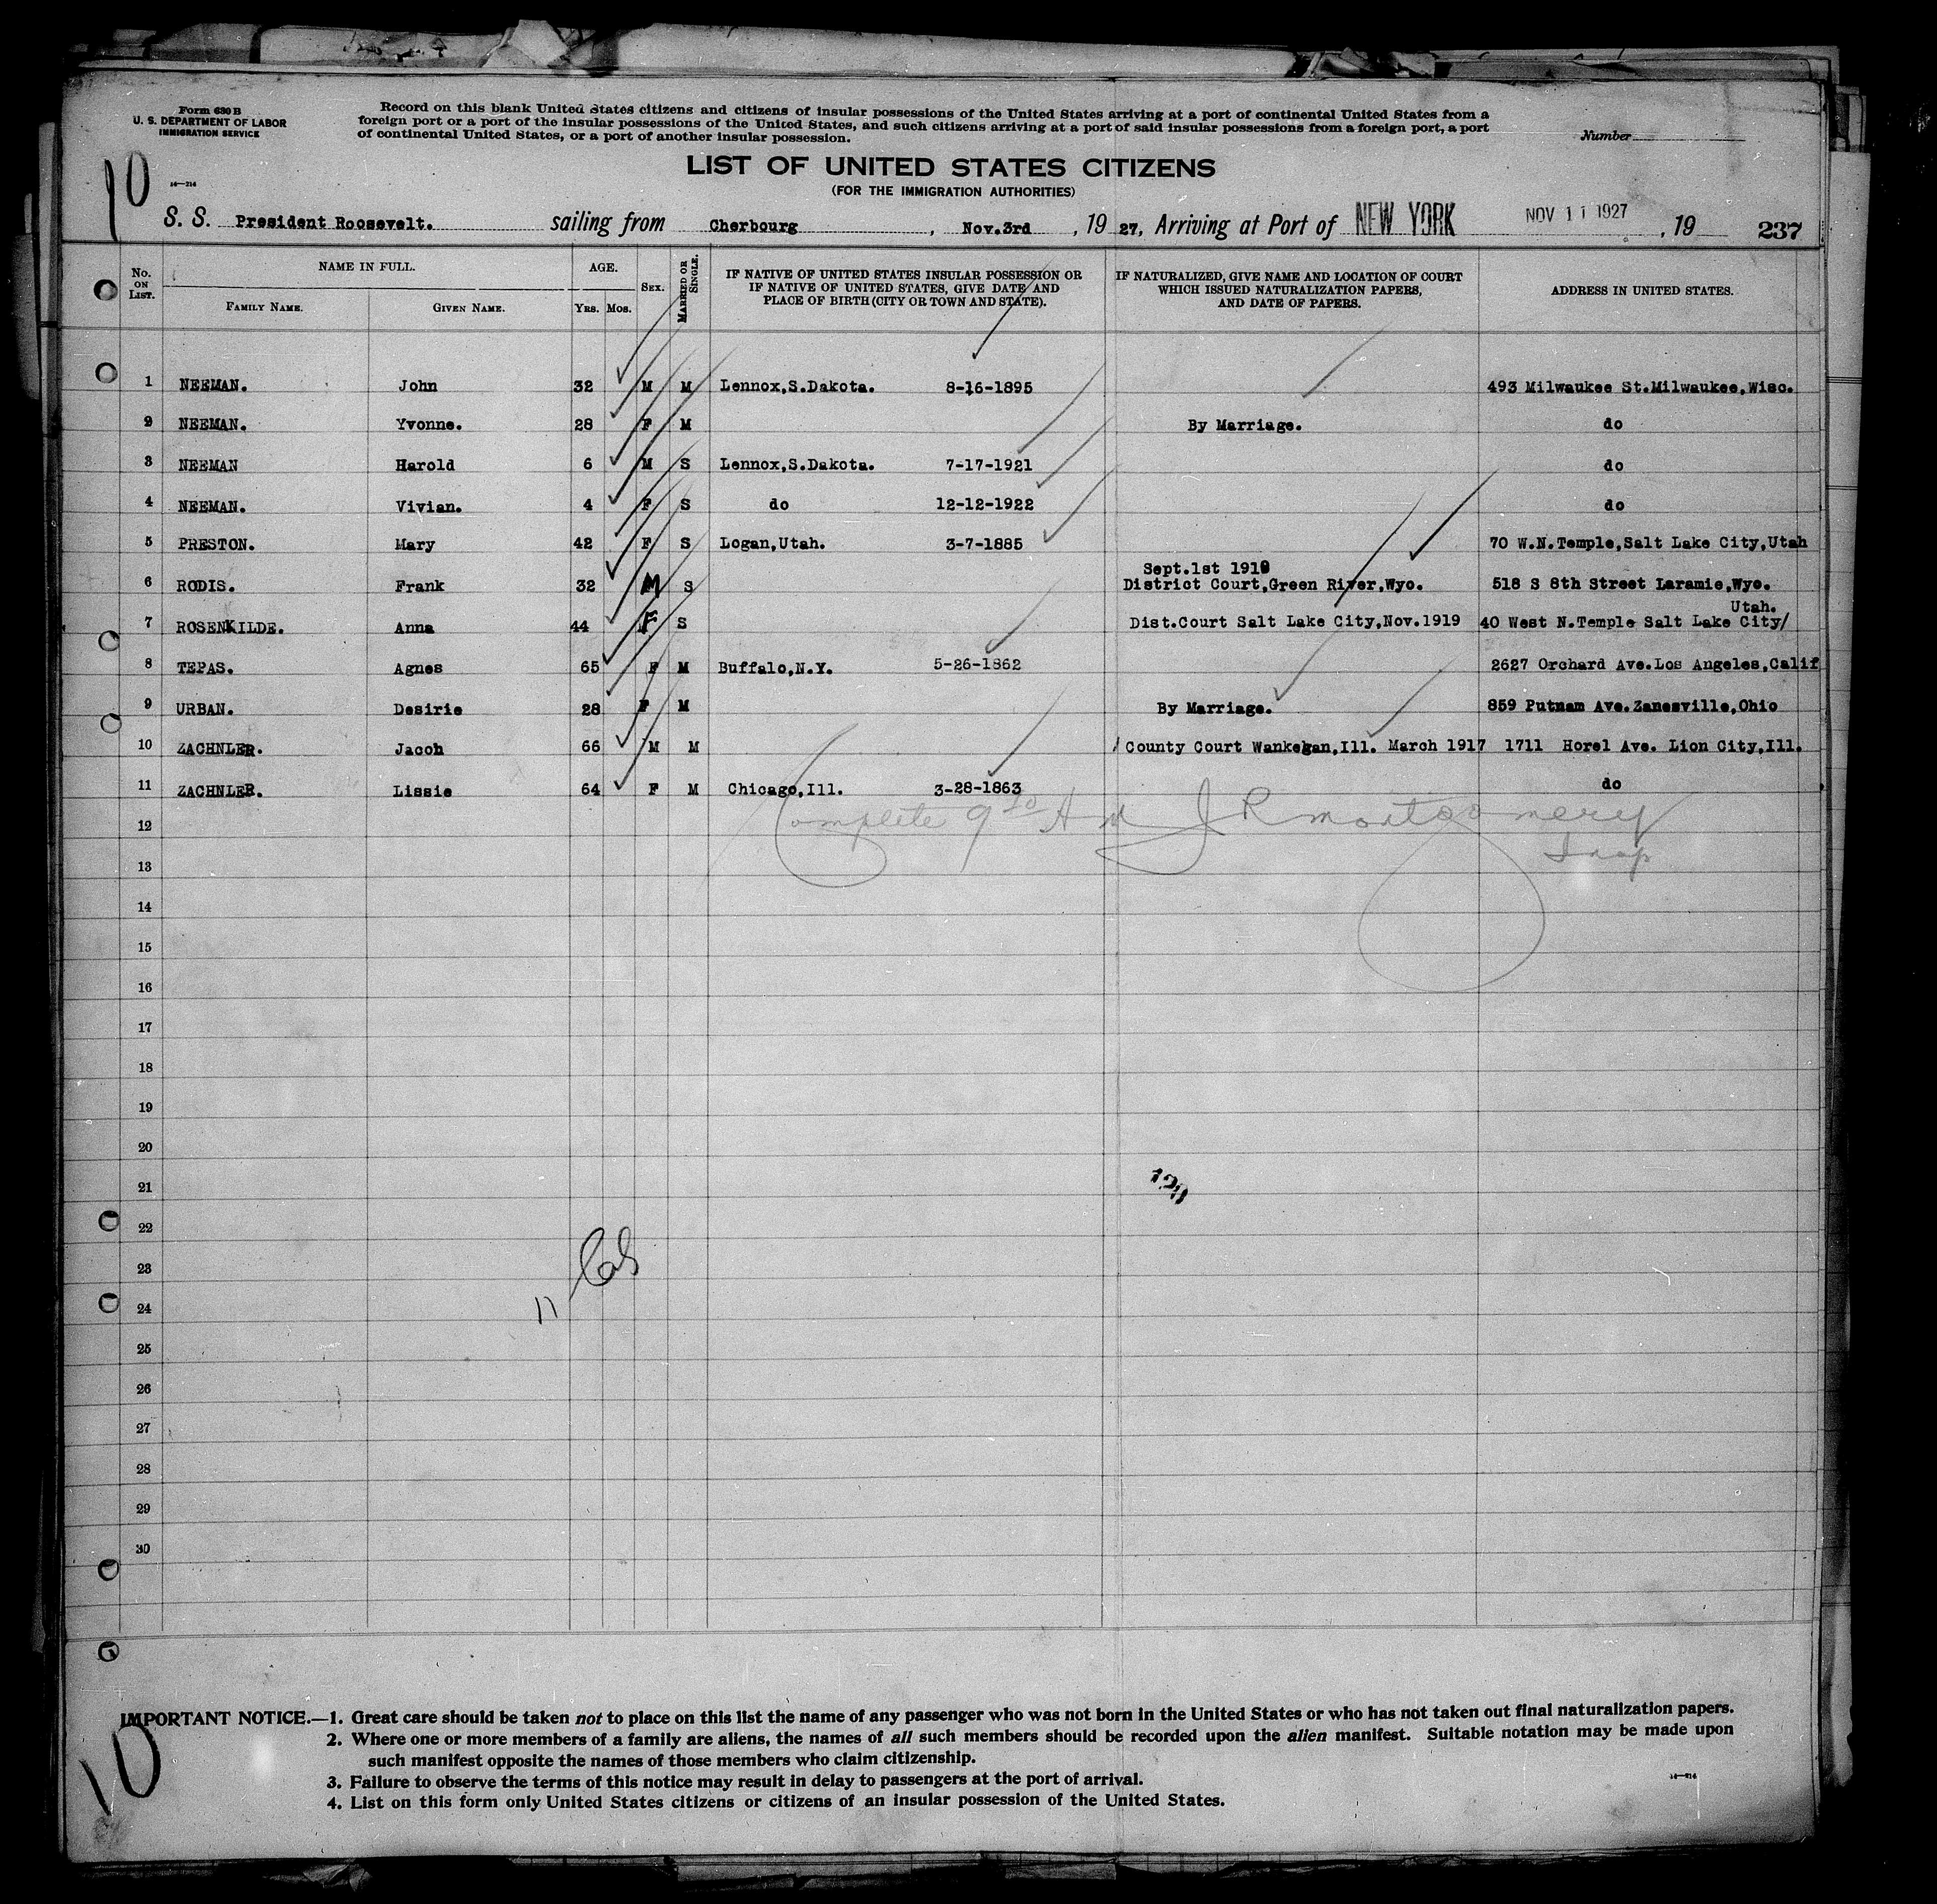 Form 630 B
U. S. DEPARTMENT OF LABOR
IMMIGRATION SERVICE
Record on this blank United States citizens and citizens of insular possessions of the United States arriving at a port of continental United States from a
foreign port or a port of the insular possessions of the United States, and such citizens arriving at a port of said insular possessions from a foreign port, a port
of continental United States, or a port of another insular possession.
Number
10
14—214
LIST OF UNITED STATES CITIZENS
(FOR THE IMMIGRATION AUTHORITIES)
S. S. President Roosevelt. sailing from Cherbourg , Nov.3rd , 19 27, Arriving at Port of NEW YORK NOV 11 1927 , 19 237
No. ON LIST. NAME IN FULL. AGE. SEX. MARRIED OR SINGLE. IF NATIVE OF UNITED STATES INSULAR POSSESSION OR IF NATIVE OF UNITED STATES, GIVE DATE AND PLACE OF BIRTH (CITY OR TOWN AND STATE). IF NATURALIZED, GIVE NAME AND LOCATION OF COURT WHICH ISSUED NATURALIZATION PAPERS, AND DATE OF PAPERS. ADDRESS IN UNITED STATES.
FAMILY NAME. GIVEN NAME. YRS. MOS.
1 NEEMAN. John 32 M M Lennox,S.Dakota. 8-16-1895 493 Milwaukee St.Milwaukee,Wisc.
2 NEEMAN. Yvonne. 28 F M By Marriage. do
3 NEEMAN Harold 6 M S Lennox,S.Dakota. 7-17-1921 do
4 NEEMAN. Vivian. 4 F S do 12-12-1922 do
5 PRESTON. Mary 42 F S Logan,Utah. 3-7-1885 70 W.N.Temple,Salt Lake City,Utah
Sept.1st 1919
6 RODIS. Frank 32 M S District Court,Green River,Wyo. 518 S 8th Street Laramie,Wyo.
Utah.
7 ROSENKILDE. Anna 44 F S Dist.Court Salt Lake City,Nov.1919 40 West N.Temple Salt Lake City/
8 TEPAS. Agnes 65 F M Buffalo,N.Y. 5-26-1862 2627 Orchard Ave.Los Angeles,Calif
9 URBAN. Desirie 28 F M By Marriage. 859 Putnam Ave.Zanesville,Ohio
10 ZACHNLER. Jacob 66 M M County Court Wankegan,Ill. March 1917 1711 Horel Ave. Lion City,Ill.
11 ZACHNLER. Lissie 64 F M Chicago,Ill. 3-28-1863 do
Complete 9 10 AM J R Montgomery
Insp
12
13
14
15
16
17
18
19
20
21
22
23
24
11
25
26
27
28
29
30
IMPORTANT NOTICE.—1. Great care should be taken not to place on this list the name of any passenger who was not born in the United States or who has not taken out final naturalization papers.
2. Where one or more members of a family are aliens, the names of all such members should be recorded upon the alien manifest. Suitable notation may be made upon
such manifest opposite the names of those members who claim citizenship.
3. Failure to observe the terms of this notice may result in delay to passengers at the port of arrival.
4. List on this form only United States citizens or citizens of an insular possession of the United States.
14—214
10